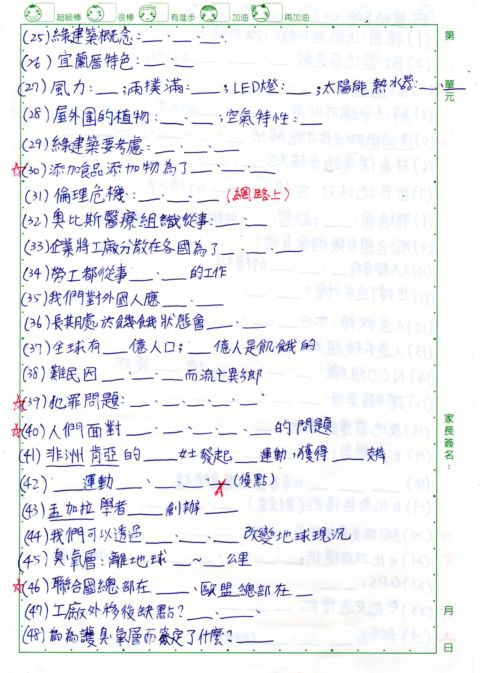 超級棒 很棒 有進步 加油 再加油
第
單元
家長簽名：
月
日
(25)綠建築概念:__、__、__
(26)宜蘭厝特色:__、__
(27)風力:__;雨撲滿:__;LED燈:__;太陽能熱水器:__、__
(28)屋外圍的植物:__、__;空氣特性:__
(29)綠建築要考慮:__、__
☆(30)添加食品添加物為了__、__、__
(31)倫理危機:__、__、__(網路上)
(32)奧比斯醫療組織從事:__、__
(33)企業將工廠分散在各國為了__、__、__
(34)勞工都從事__、__的工作
(35)我們對外國人應__、__
(36)長期處於饑餓狀態會__、__、__
(37)全球有__億人口;__億人是飢餓的
(38)難民因__、__、__而流亡異鄉
☆(39)犯罪問題:__、__、__、__
☆(40)人們面對__、__、__、__的問題
(41)非洲肯亞的__女士發起__運動,獲得__獎
(42)__運動__、__、__(優點)
(43)孟加拉學者__創辦__
(44)我們可以透過__、__、__改變地球現況
(45)臭氧層:離地球__~__公里
☆(46)聯合國總部在__、歐盟總部在__
(47)工廠外移後缺點?__、__、
(48)為維護臭氧層而簽定了什麼?__